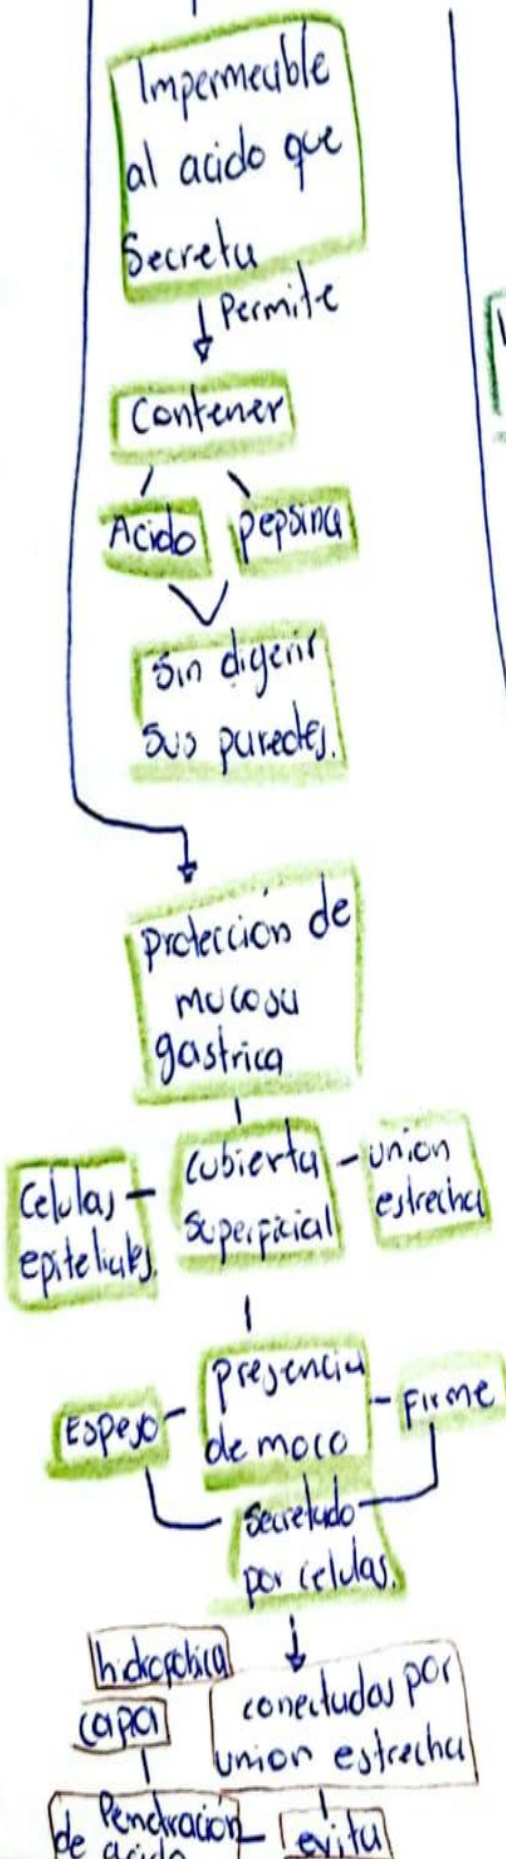 Impermeable
al acido que
Secreta
Permite
Contener
Acido
pepsina
Sin digerir
sus paredes.
protección de
mucosa
gastrica
Celulas
epiteliales.
cubierta
superficial
union
estrecha
Espeso
presencia
de moco
Firme
secretado
por celulas.
hidrofobica
capa
conectadas por
union estrecha
Penetracion
de acido
evita